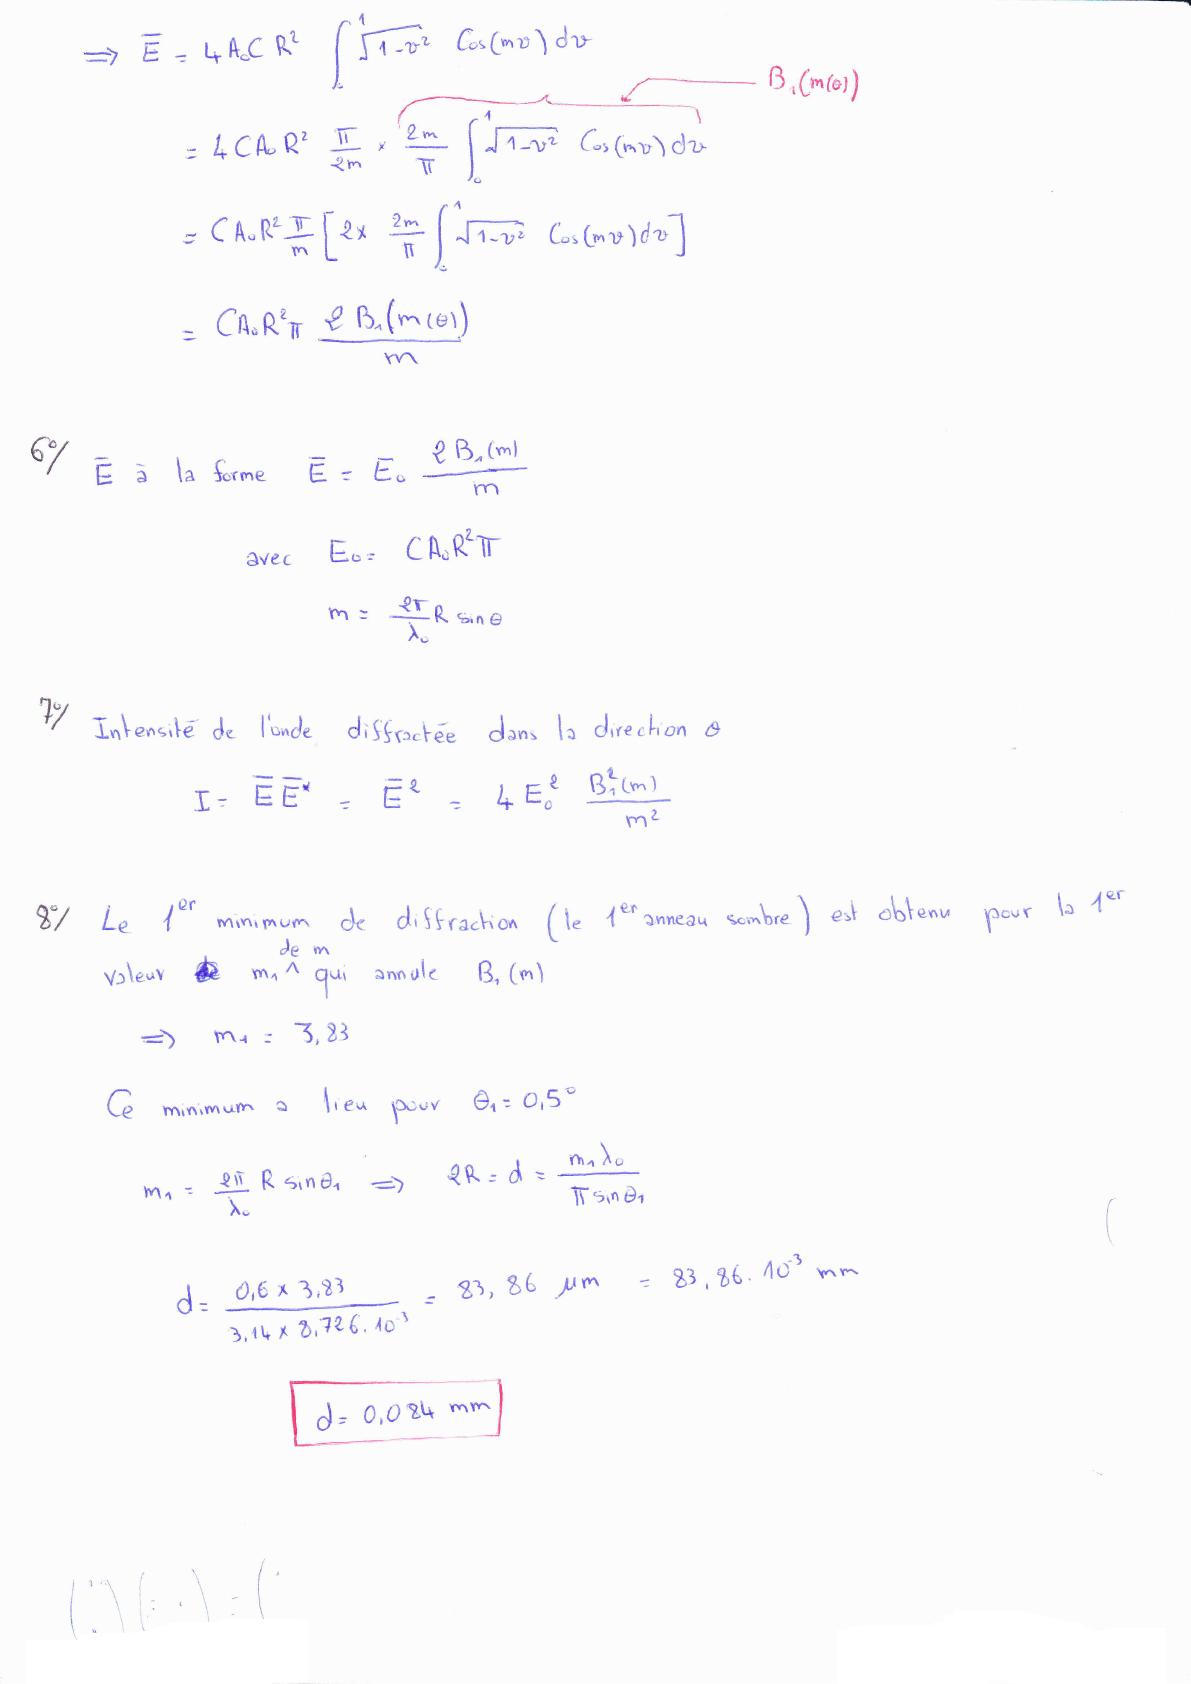 ⟹ Ē = 4 A₀ C R² ∫₀¹ √(1-v²) Cos(mv) dv
B₁(m(θ))
= 4 C A₀ R² π/2m × 2m/π ∫₀¹ √(1-v²) Cos(mv) dv
= C A₀ R² π/m [2 × 2m/π ∫₀¹ √(1-v²) Cos(mv) dv]
= C A₀ R² π 2 B₁(m(θ))/m
6°/ Ē à la forme Ē = E₀ 2 B₁(m)/m
avec E₀ = C A₀ R² π
m = 2π/λ₀ R sin θ
7°/ Intensité de l'onde diffractée dans la direction θ
I = Ē Ē* = Ē² = 4 E₀² B₁²(m)/m²
8°/ Le 1er minimum de diffraction (le 1er anneau sombre) est obtenu pour la 1er
valeur m₁ de m qui annule B₁(m)
⟹ m₁ = 3,83
Ce minimum a lieu pour θ₁ = 0,5°
m₁ = 2π/λ₀ R sin θ₁ ⟹ 2R = d = m₁ λ₀/π sin θ₁
d = 0,6 × 3,83/3,14 × 8,726.10⁻³ = 83,86 μm = 83,86.10⁻³ mm
d = 0,084 mm